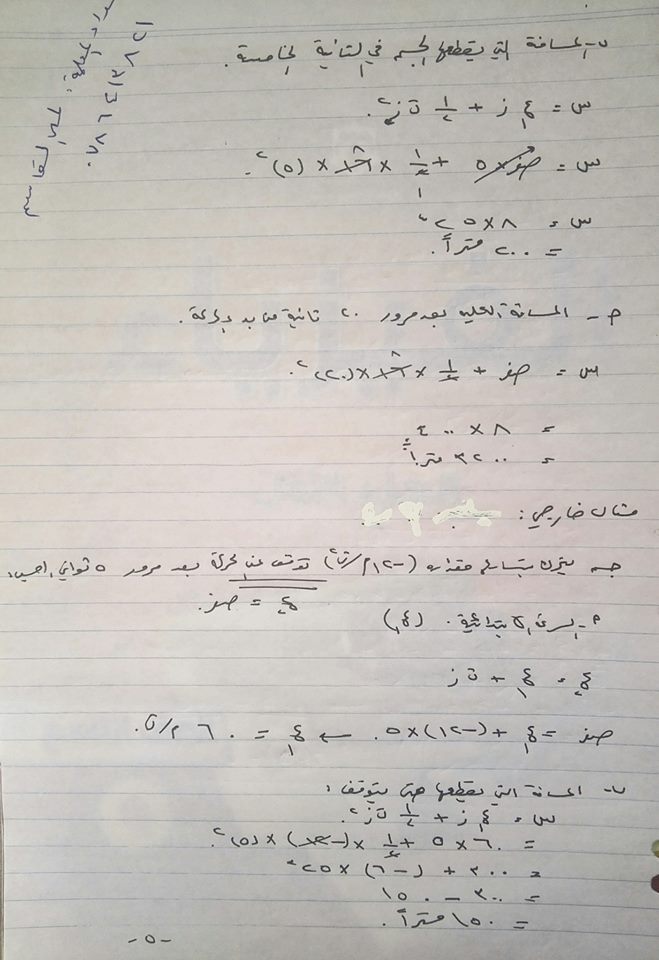 ب- المسافة التي يقطعها الجسم في الثانية الخامسة.
س = ع١ ز + ١/٢ ت ز²
س = صفر×٥ + ١/٢ × ١٦ ٨ × (٥)²
س = ٨×٢٥
= ٢٠٠ متراً.
ج- المسافة الكلية بعد مرور ٢٠ ثانية من بدء الحركة.
س = صفر + ١/٢ × ١٦ ٨ × (٢٠)²
= ٨ × ٤٠٠
= ٣٢٠٠ متراً
مثال خارجي:
جسم يتحرك بتسارع مقداره (-١٢ م/ث²) توقف عن الحركة بعد مرور ٥ ثواني، احسب:
ع٢ = صفر.
أ- السرعة الابتدائية. (ع١)
ع٢ = ع١ + ت ز
صفر = ع١ + (-١٢)×٥ ← ع١ = ٦٠ م/ث.
ب- المسافة التي يقطعها حتى يتوقف:
س = ع١ ز + ١/٢ ت ز²
= ٦٠×٥ + ١/٢ × (-١٢) × (٥)²
= ٣٠٠ + (-٦)×٢٥
= ٣٠٠ - ١٥٠
= ١٥٠ متراً.
-٥-